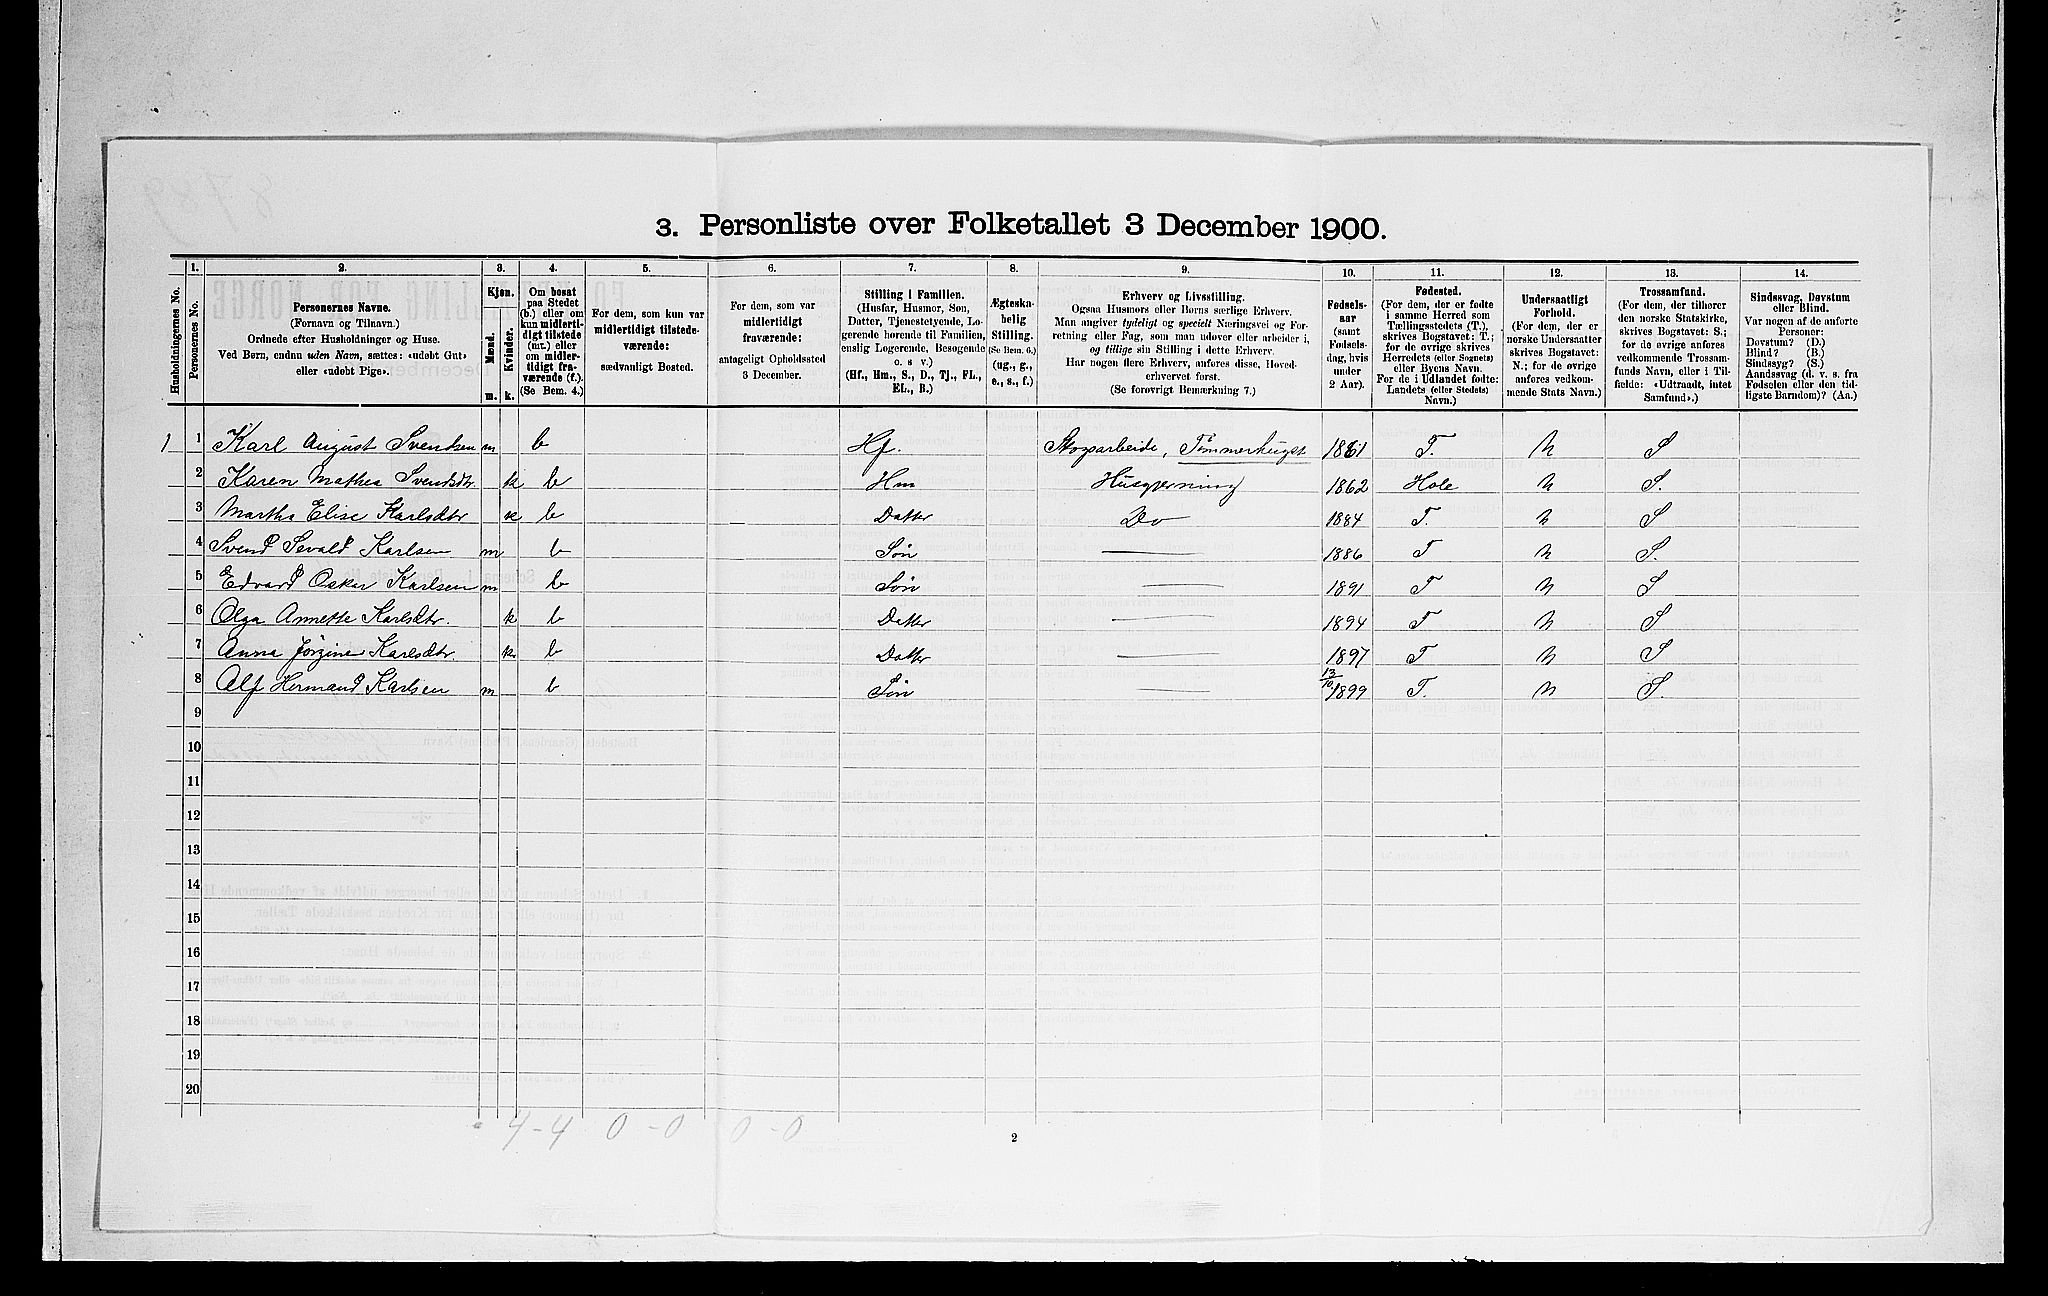 3. Personliste over Folketallet 3 December 1900.
1. 2. 3. 4. 5. 6. 7. 8. 9. 10. 11. 12. 13. 14.
Husholdningernes No.
Personernes No.
Personernes Navne.
(Fornavn og Tilnavn.)
Ordnede efter Husholdninger og Huse.
Ved Børn, endnu uden Navn, sættes: «udøbt Gut»
eller «udøbt Pige».
Kjøn.
Mænd.
Kvinder.
m. k.
Om bosat
paa Stedet
(b.) eller om
kun midlerti-
digt tilstede
(mt.) eller
om midler-
tidigt fra-
værende (f.).
(Se Bem. 4.)
For dem, som kun var
midlertidigt tilstede-
værende:
sædvanligt Bosted.
For dem, som var
midlertidigt
fraværende:
antageligt Opholdssted
3 December.
Stilling i Familien.
(Husfar, Husmor, Søn,
Datter, Tjenestetyende, Lo-
gerende hørende til Familien,
enslig Logerende, Besøgende
o. s v.)
(Hf., Hm., S., D., Tj., FL.,
EL., B.)
Ægteska-
belig
Stilling.
(Se Bem. 6.)
(ug., g.,
e., s., f.)
Erhverv og Livsstilling.
Ogsaa Husmors eller Børns særlige Erhverv.
Man angiver tydeligt og specielt Næringsvei og For-
retning eller Fag, som man udøver eller arbeider i,
og tillige sin Stilling i dette Erhverv.
Har nogen flere Erhverv, anføres disse, Hoved-
erhvervet først.
(Se forøvrigt Bemærkning 7.)
Fødsels-
aar
(samt
Fødsels-
dag, hvis
under
2 Aar).
Fødested.
(For dem, der er fødte
i samme Herred som
Tællingsstedets (T.),
skrives Bogstavet: T.;
for de øvrige skrives
Herredets (eller Sognets)
eller Byens Navn.
For de i Udlandet fødte:
Landets (eller Stedets)
Navn.)
Undersaatligt
Forhold.
(For dem, der er
norske Undersaatter
skrives Bogstavet:
N.; for de øvrige
anføres vedkom-
mende Stats Navn.)
Trossamfund.
(For dem, der tilhører
den norske Statskirke,
skrives Bogstavet: S.;
for de øvrige anføres
vedkommende Trossam-
funds Navn, eller i Til-
fælde: «Udtraadt, intet
Samfund».)
Sindssvag, Døvstum
eller Blind.
Var nogen af de anførte
Personer:
Døvstum? (D.)
Blind? (B.)
Sindssyg? (S.)
Aandssvag (d. v. s. fra
Fødselen eller den tid-
ligste Barndom)? (Aa.)
1 1 Karl August Svendsen m b Hf. Skogsarbeide, Tømmerhugst 1861 T. N S
2 Karen Mathea Svendsdtr. k b Hm Husgjerning 1862 Hole N S.
3 Martha Elise Karlsdtr k b Datter Do 1884 T. N S
4 Svend Sevald Karlsen m b Søn 1886 T N S.
5 Edvard Oskar Karlsen m b Søn 1891 T N S
6 Olga Annette Karlsdtr. k b Datter 1894 T N S
7 Anna Jørgine Karlsdtr. k b Datter 1897 T N S
8 Alf Hermand Karlsen m b Søn 13/10 1899 T. N S.
9
10
11
12
13
14
15
16
17
18
19
20
4 - 4 0 - 0 0 - 0
2